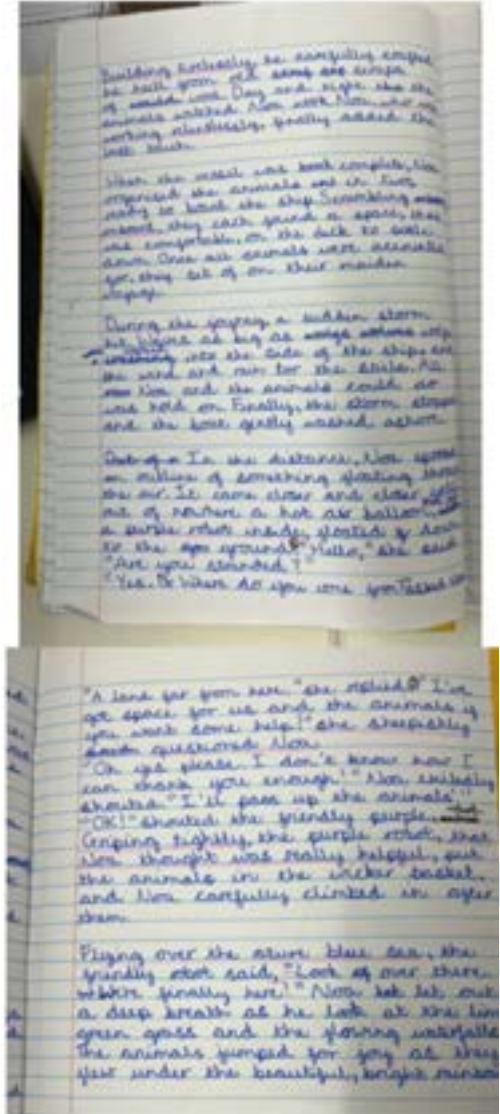 Building tirelessly, he carefully crafted
he hull from old scraps
of wood. Day and night the
animals watched Noa work. Noa, who was
working relentlessly, finally added the
last
When the vessel was complete, Noa
organised the animals in twos
ready to board the ship. Scrambling
onboard, they each found a space, that
was comfortable, on the deck to settle
down. Once all animals were accounted
for, they set of on their maiden
voyage.
During the a sudden storm
hit. as big as
into the side of the ship and
the wind and rain tor the sails. All
Noa and the animals could do
was hold on. Finally, the storm stopped
and the boat gently washed ashore.
In the distance, Noa spotted
an outline of something floating
the air. It came closer and closer
out of nowhere a hot air balloon,
a purple robot inside, floated down
to the ground. "Hello," she said
"Are you stranded?"
"Yes. Where do you come from?" asked
"A land far from here." she replied. "I've
got space for us and the animals if
you want some help!" she sheepishly
questioned Noa.
"Oh yes please. I don't know how I
can thank you enough!" Noa
shouted. "I'll pass up the animals."
"OK!" shouted the friendly purple
Griping tightly, the purple robot, that
Noa thought was really helpful, put
the animals in the wicker basket,
and Noa carefully climbed in after
them.
Flying over the azure blue sea, the
friendly robot said, "Look over there
we're finally here!" Noa let out
a deep breath as he look at the
green grass and the flowing waterfalls.
The animals jumped for joy as they
flew under the beautiful, bright rainbow